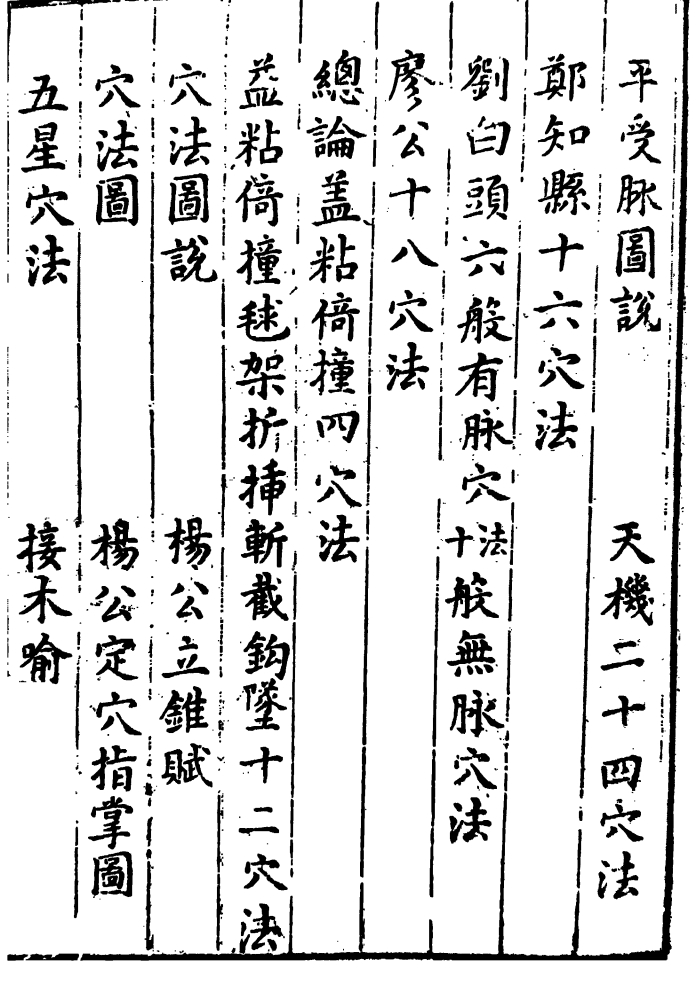 平受脉圖說　天機二十四穴法
鄭知縣十六穴法
劉白頭六般有脉穴法十般無脉穴法
廖公十八穴法
總論盖粘倚撞四穴法
益粘倚撞毬架折挿斬截鈎墜十二穴法
穴法圖說　楊公立錐賦
穴法圖　楊公定穴指掌圖
五星穴法　接木喻